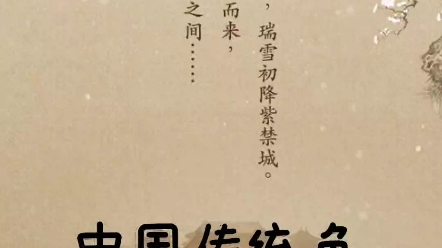 ，瑞雪初降紫禁城。
而来，
之间……
中国传统色